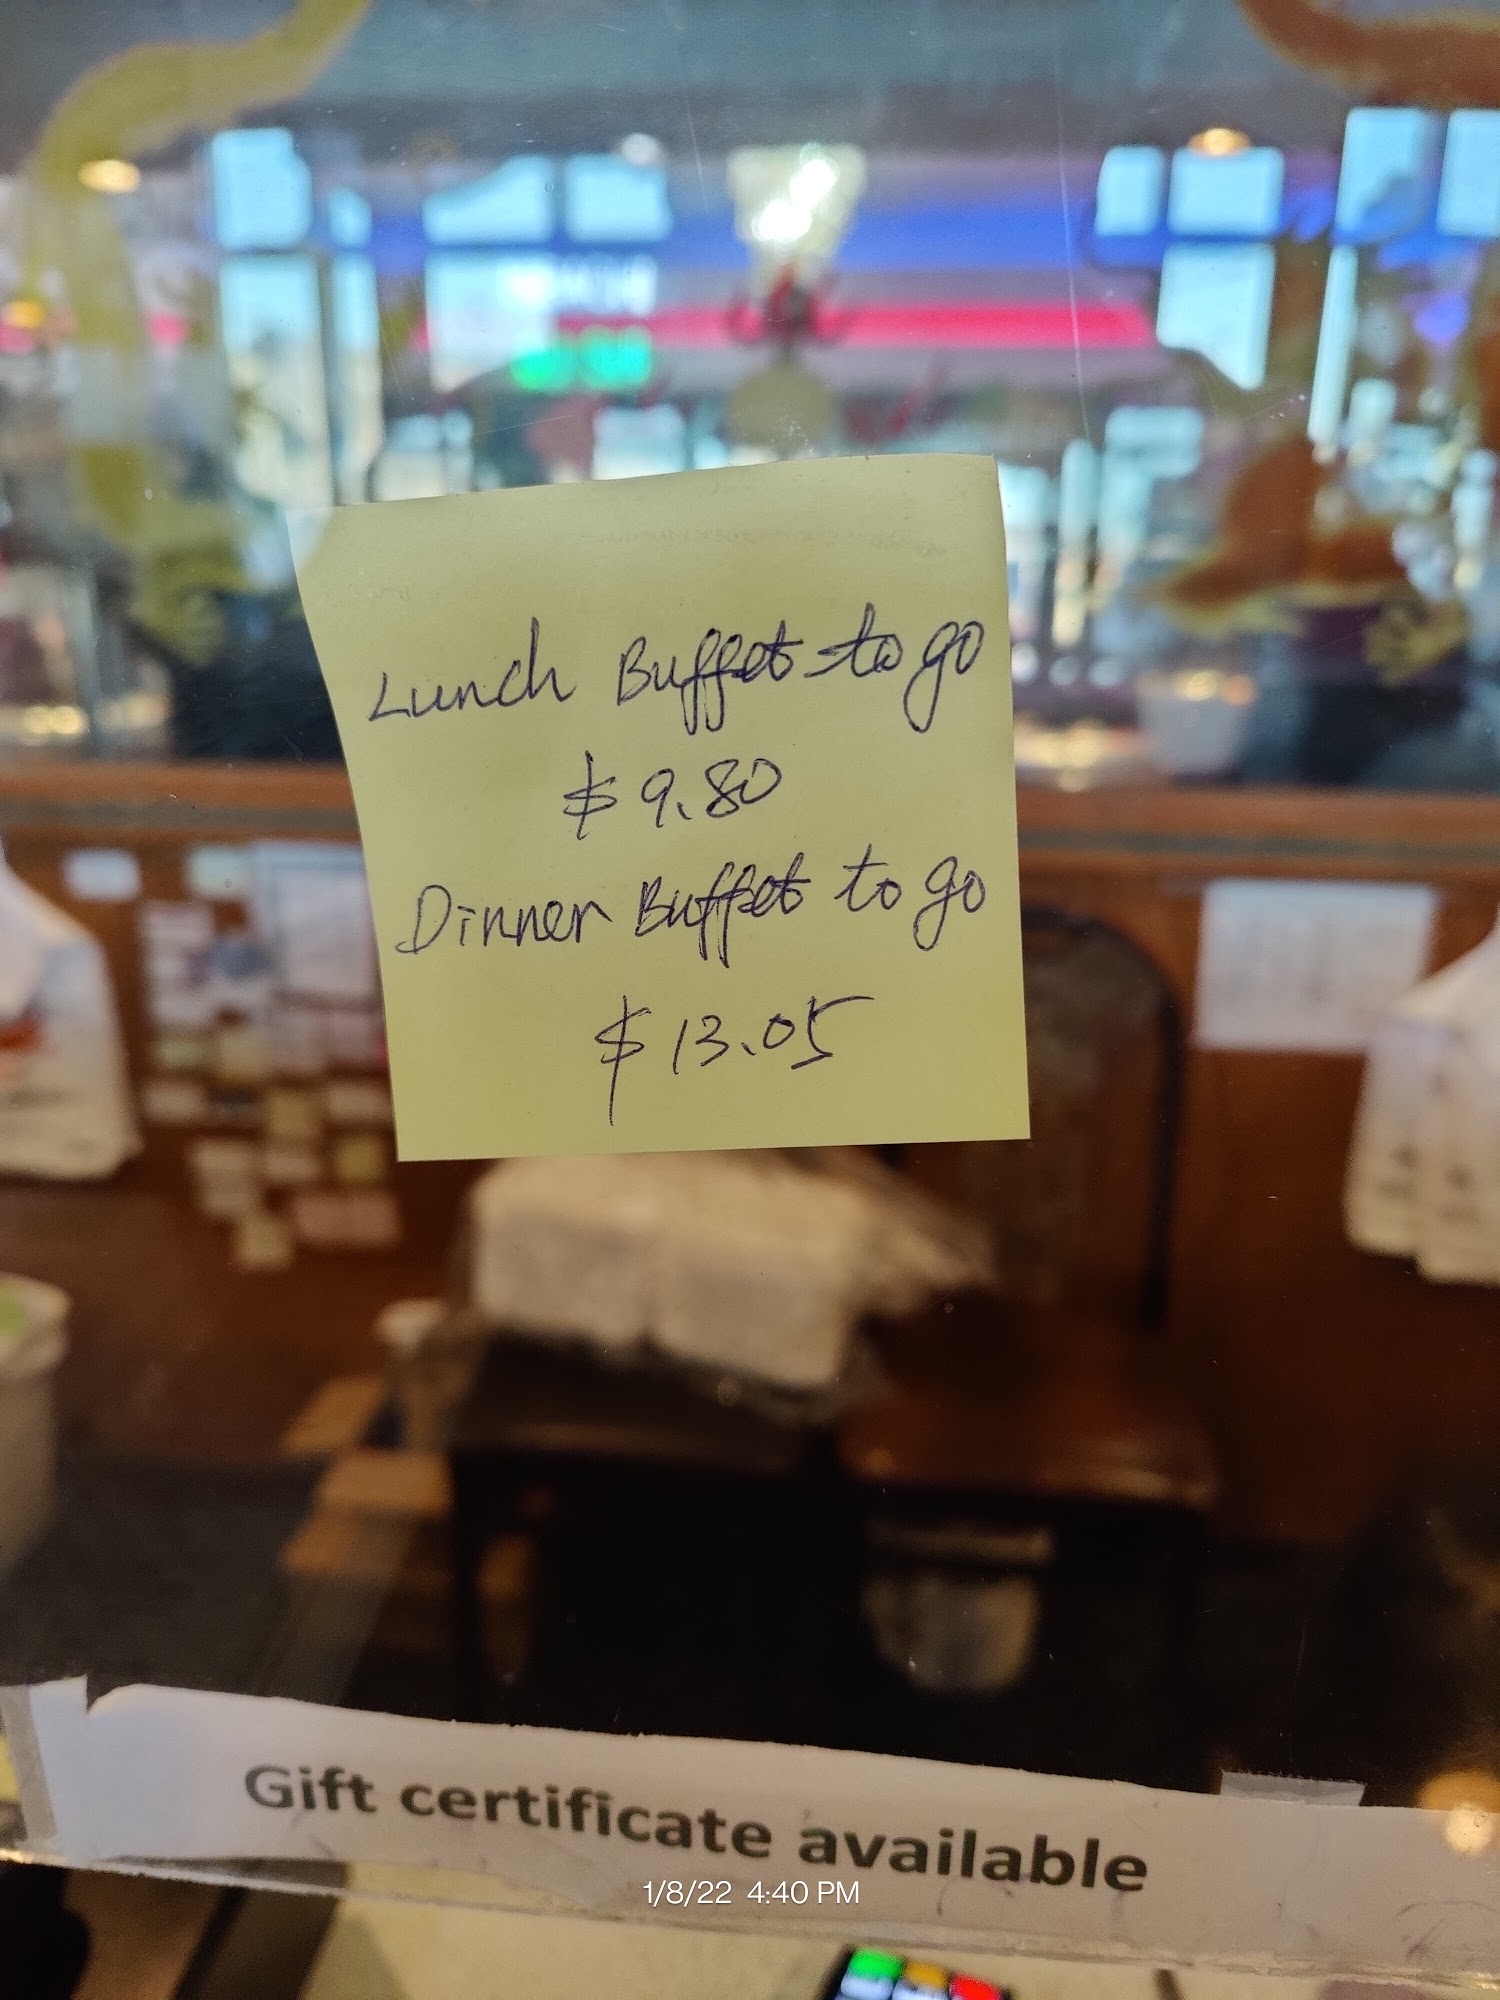 Lunch Buffet to go
$9.80
Dinner Buffet to go
$13.05
Gift certificate available
1/8/22 4:40 PM